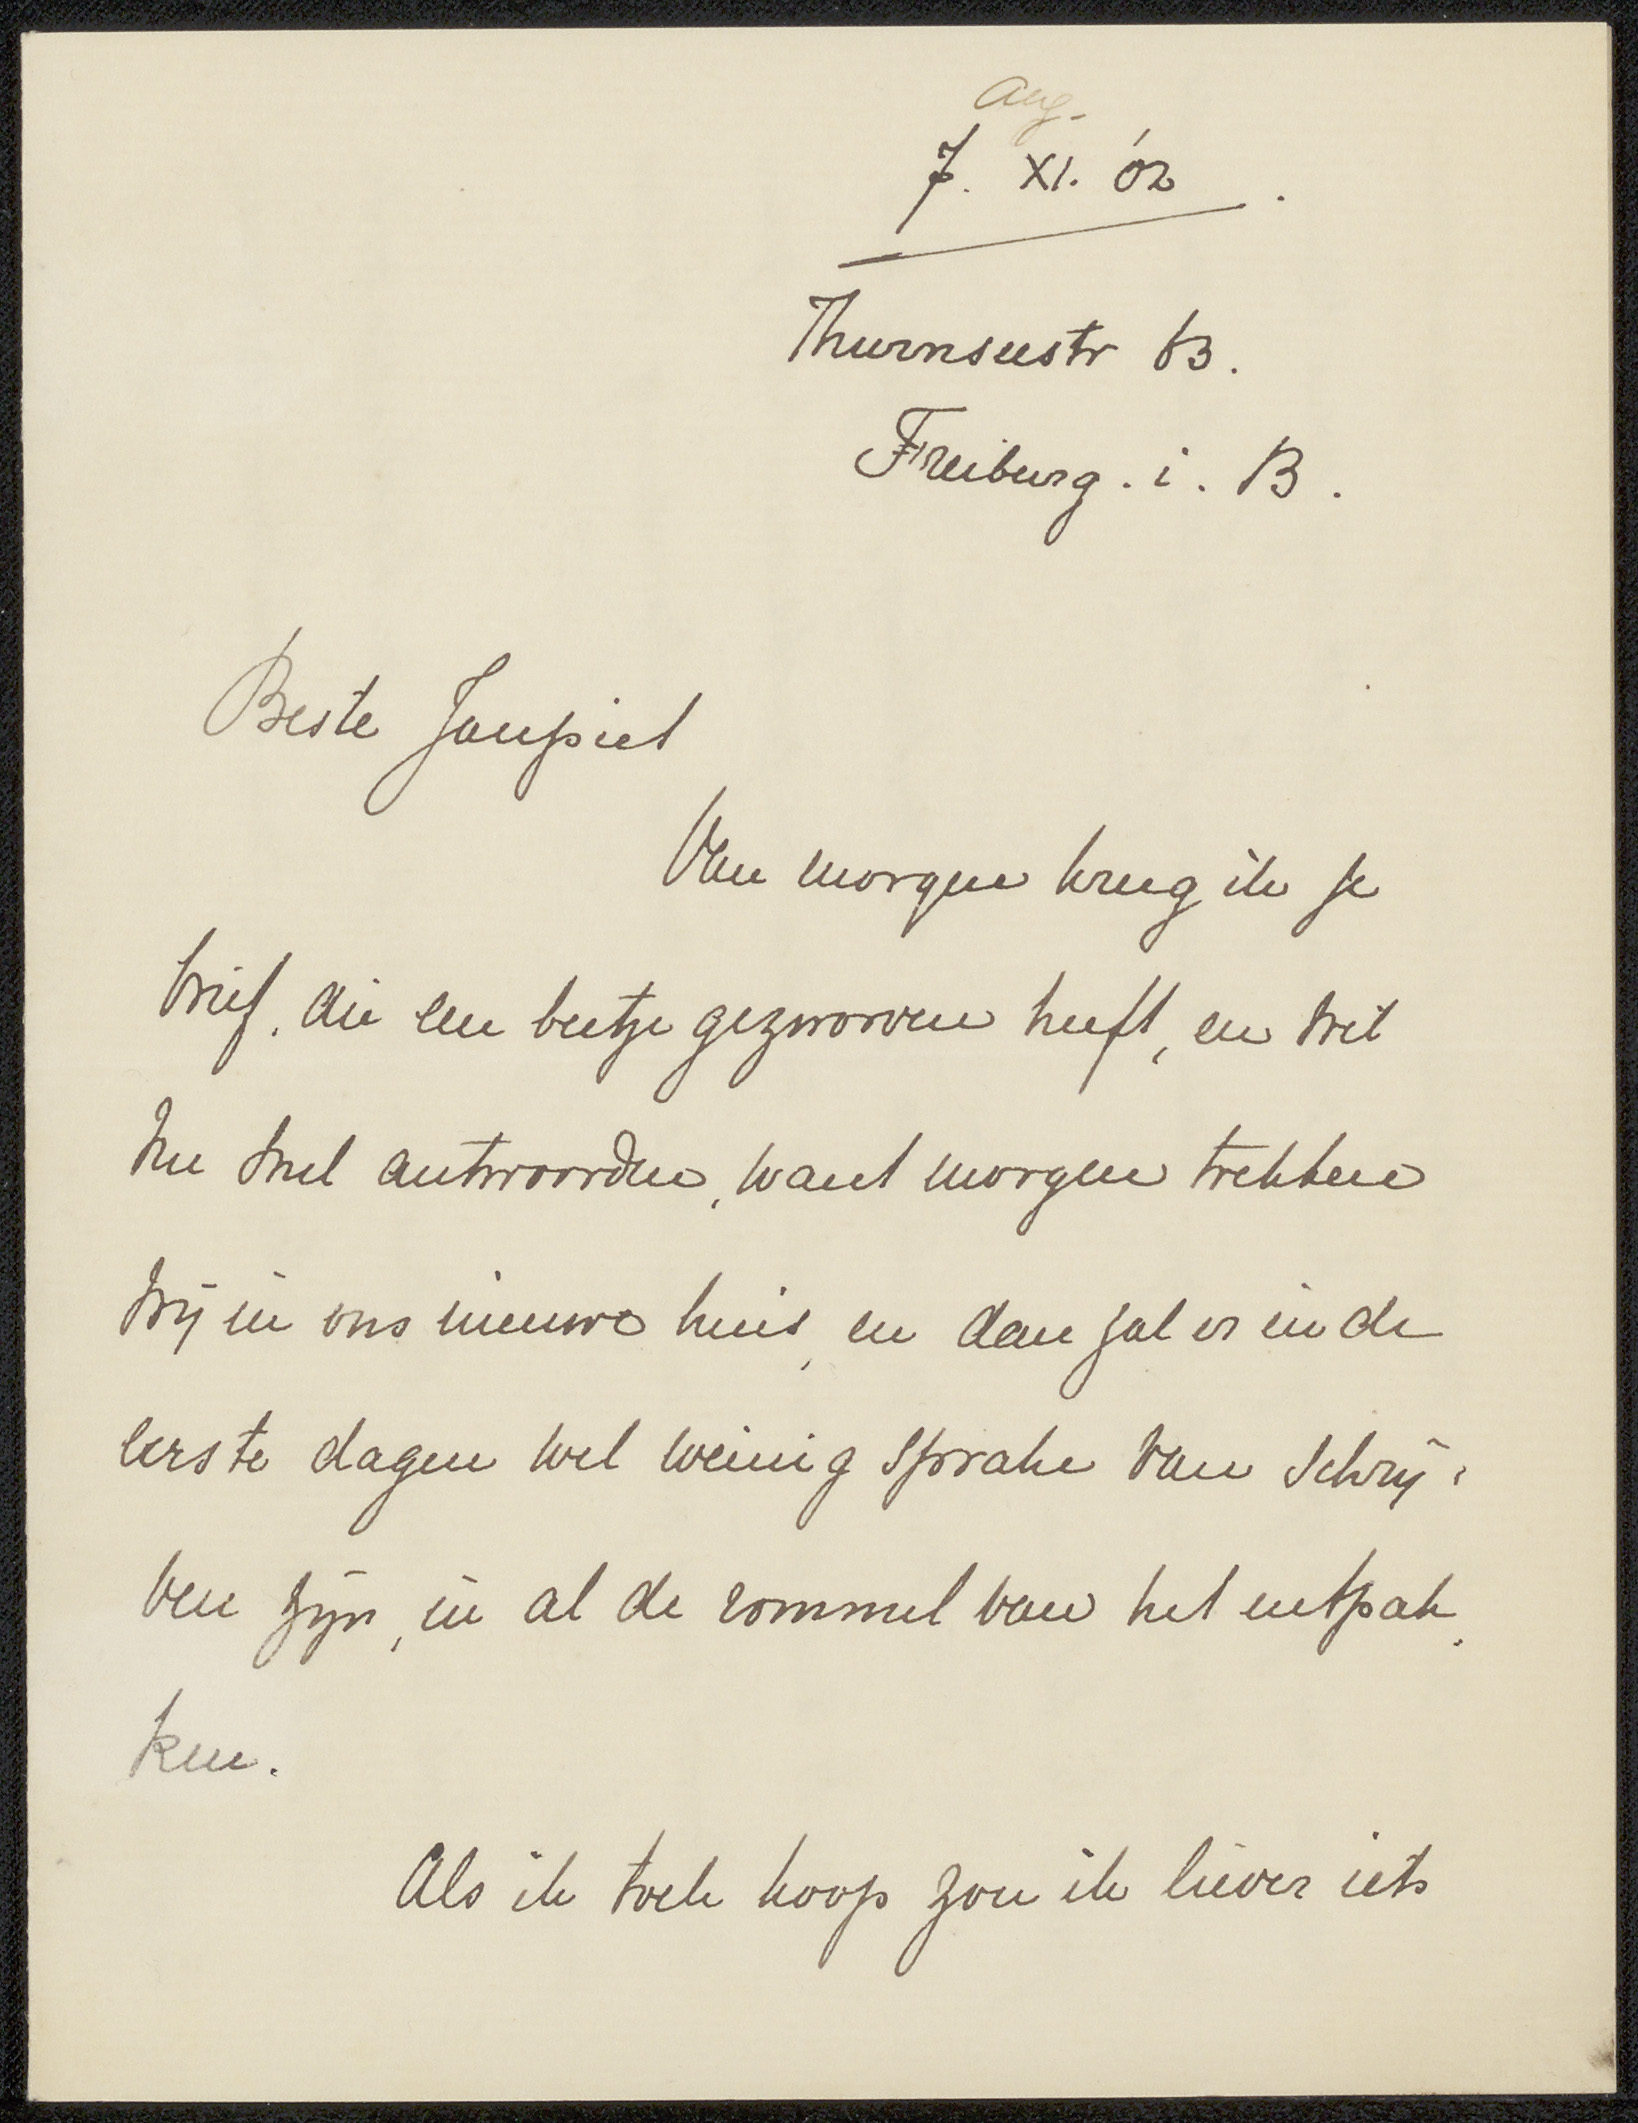 Aug.
7. XI. '02.
Thurnseestr 63.
Freiburg. i. B.
Beste Janpiet
Van morgen kreeg ik je
brief, die een beetje gezworven heeft, en wil
nu snel antwoorden, want morgen trekken
wij in ons nieuwe huis, en dan zal er in de
eerste dagen wel weinig sprake van schrij-
ven zijn, in al de rommel van het uitpak-
ken.
Als ik toch koop zou ik liever iets